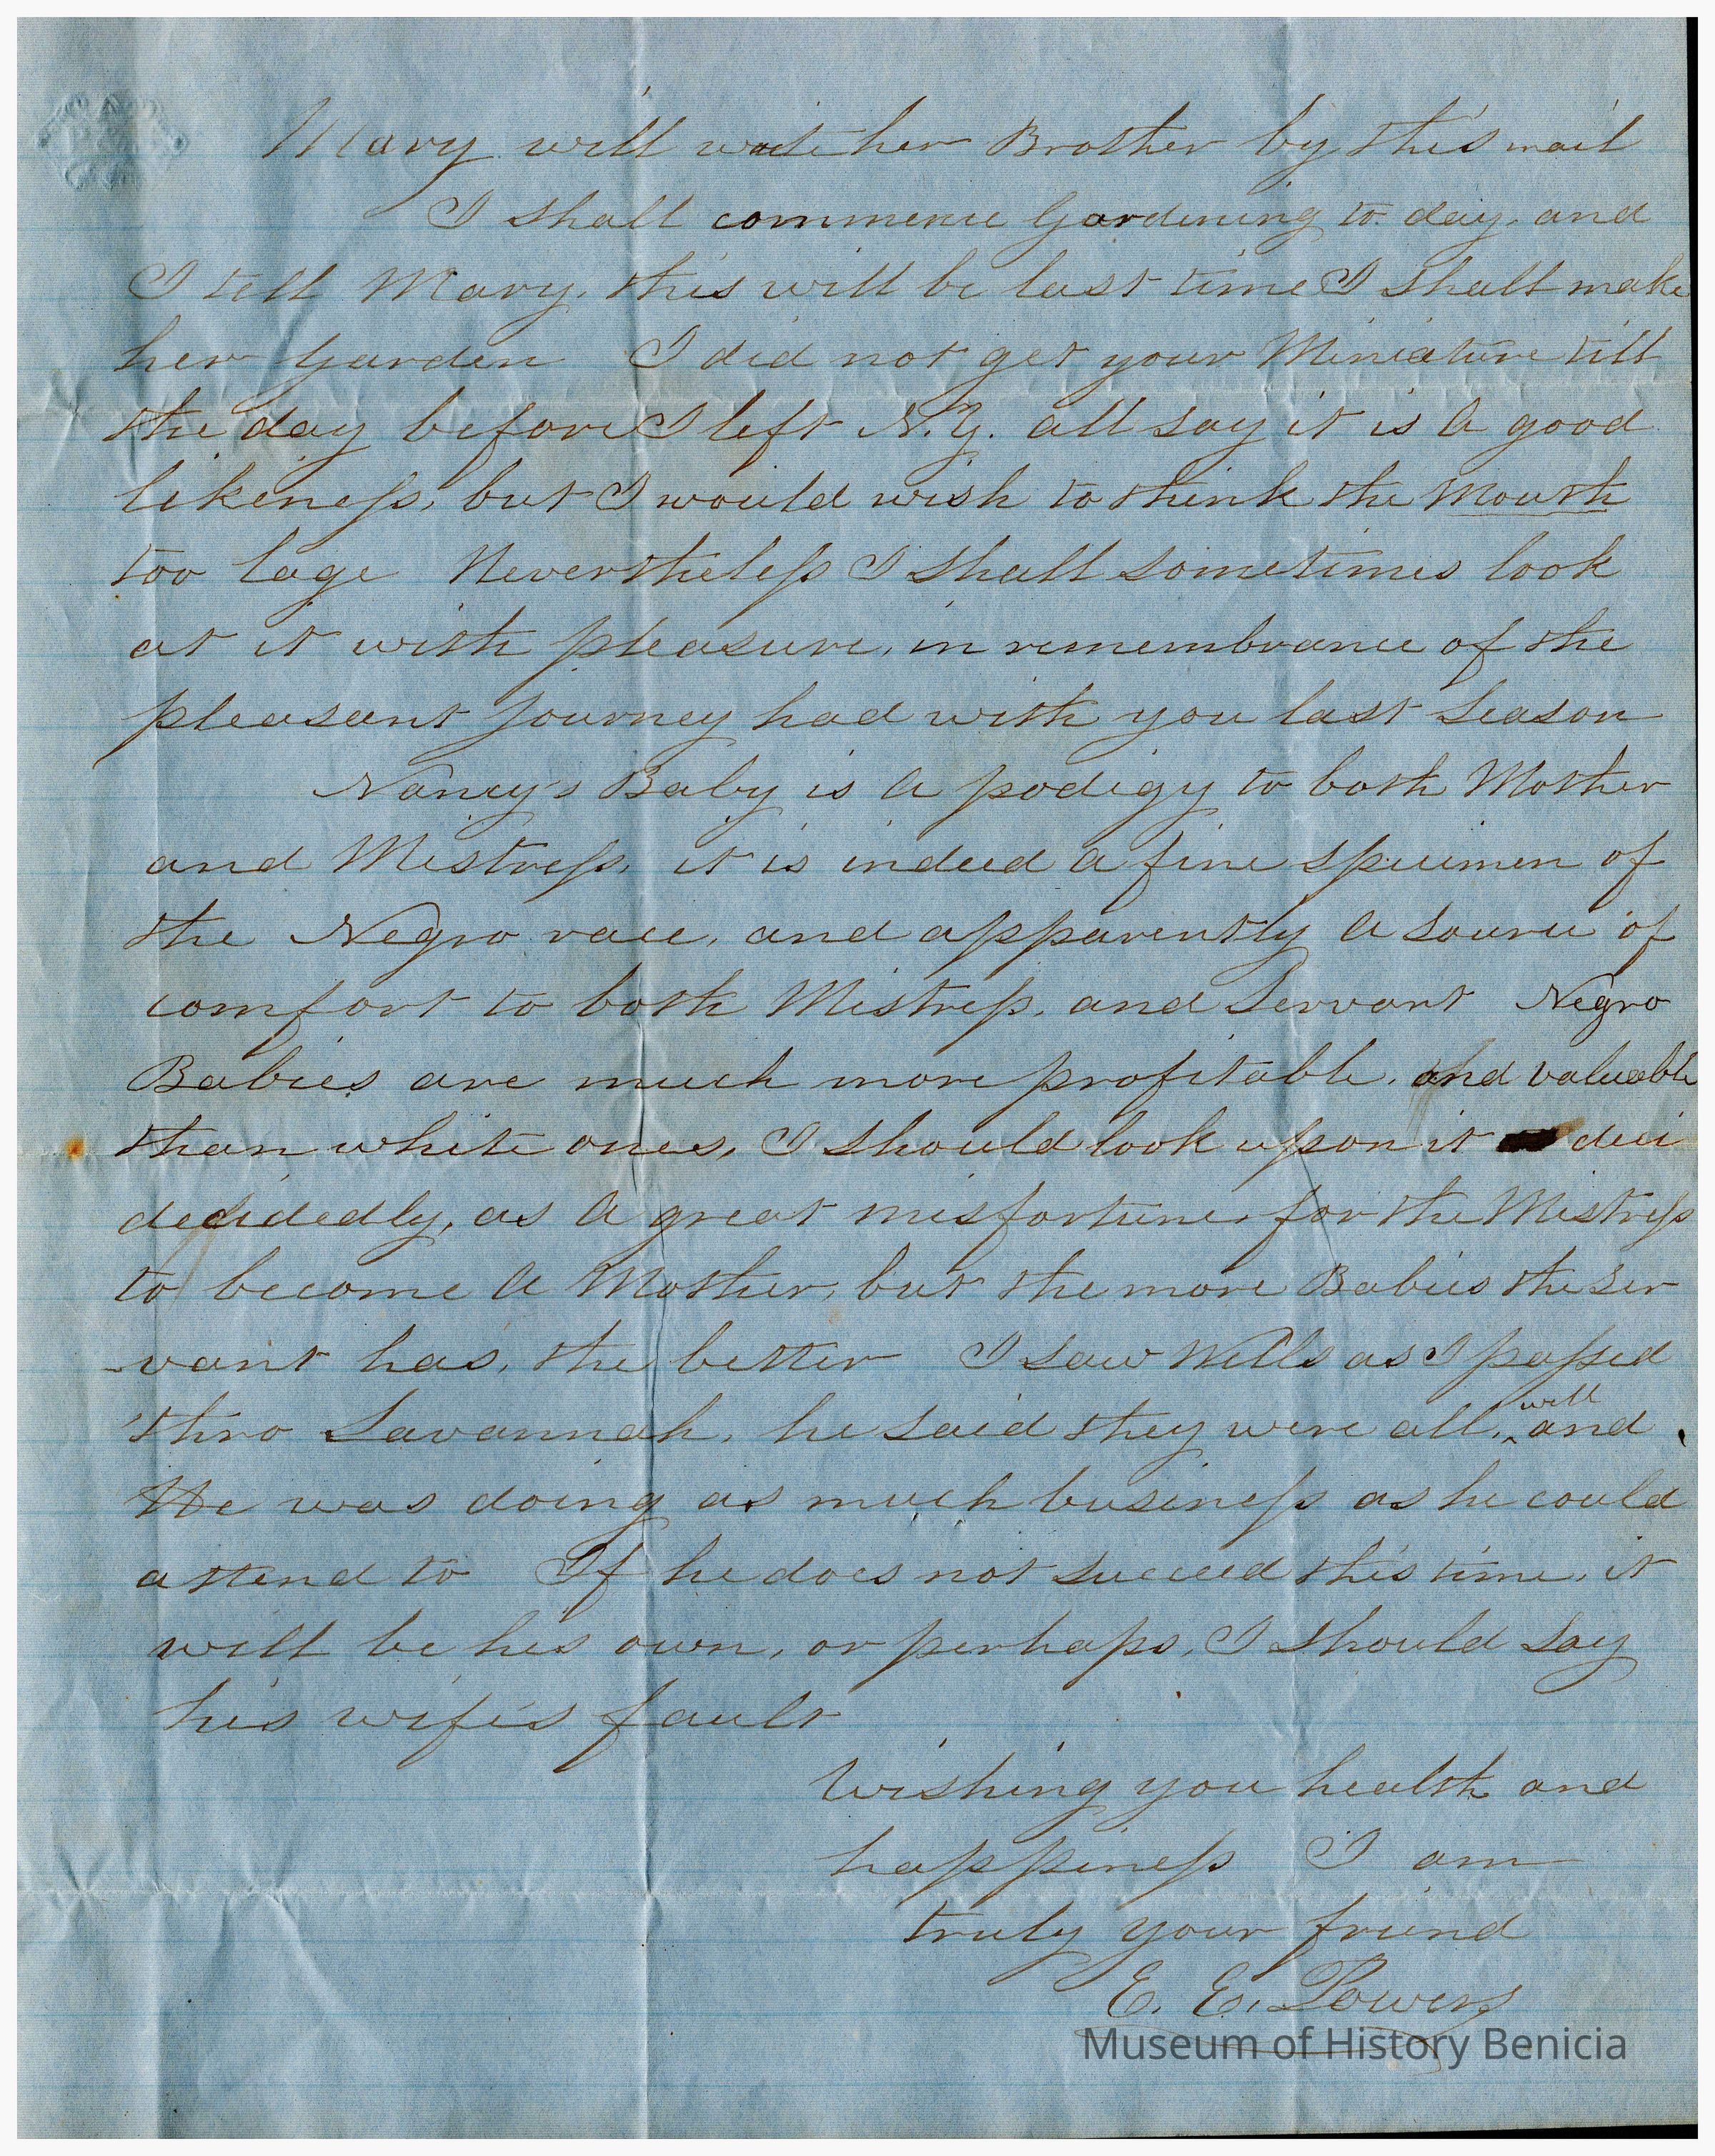 Mary will write her Brother by this mail
I shall commence Gardening to day, and
I tell Mary, this will be last time I shall make
her Garden I did not get your Miniature till
the day before I left N.Y. all say it is a good
likeness, but I would wish to think the Mouth
too lage Nevertheless I shall sometimes look
at it with pleasure, in remembrance of the
pleasant journey had with you last Season
Nancy's Baby is a podigy to both Mother
and Mistress, it is indeed a fine specimen of
the Negro race, and apparently a source of
comfort to both Mistress, and Servant Negro
Babies are much more profitable, and valuable
than white ones, I should look upon it deci
decidedly, as a great misfortune, for the Mistress
to become a Mother, but the more Babies the ser
vant has, the better I saw Wells as I passed
thro Savannah, he said they were all, well and
He was doing as much business as he could
attend to If he does not succeed this time, it
will be his own, or perhaps, I should say
his wife's fault
Wishing you health and
happiness I am
truly your friend
E. E. Powers
Museum of History Benicia